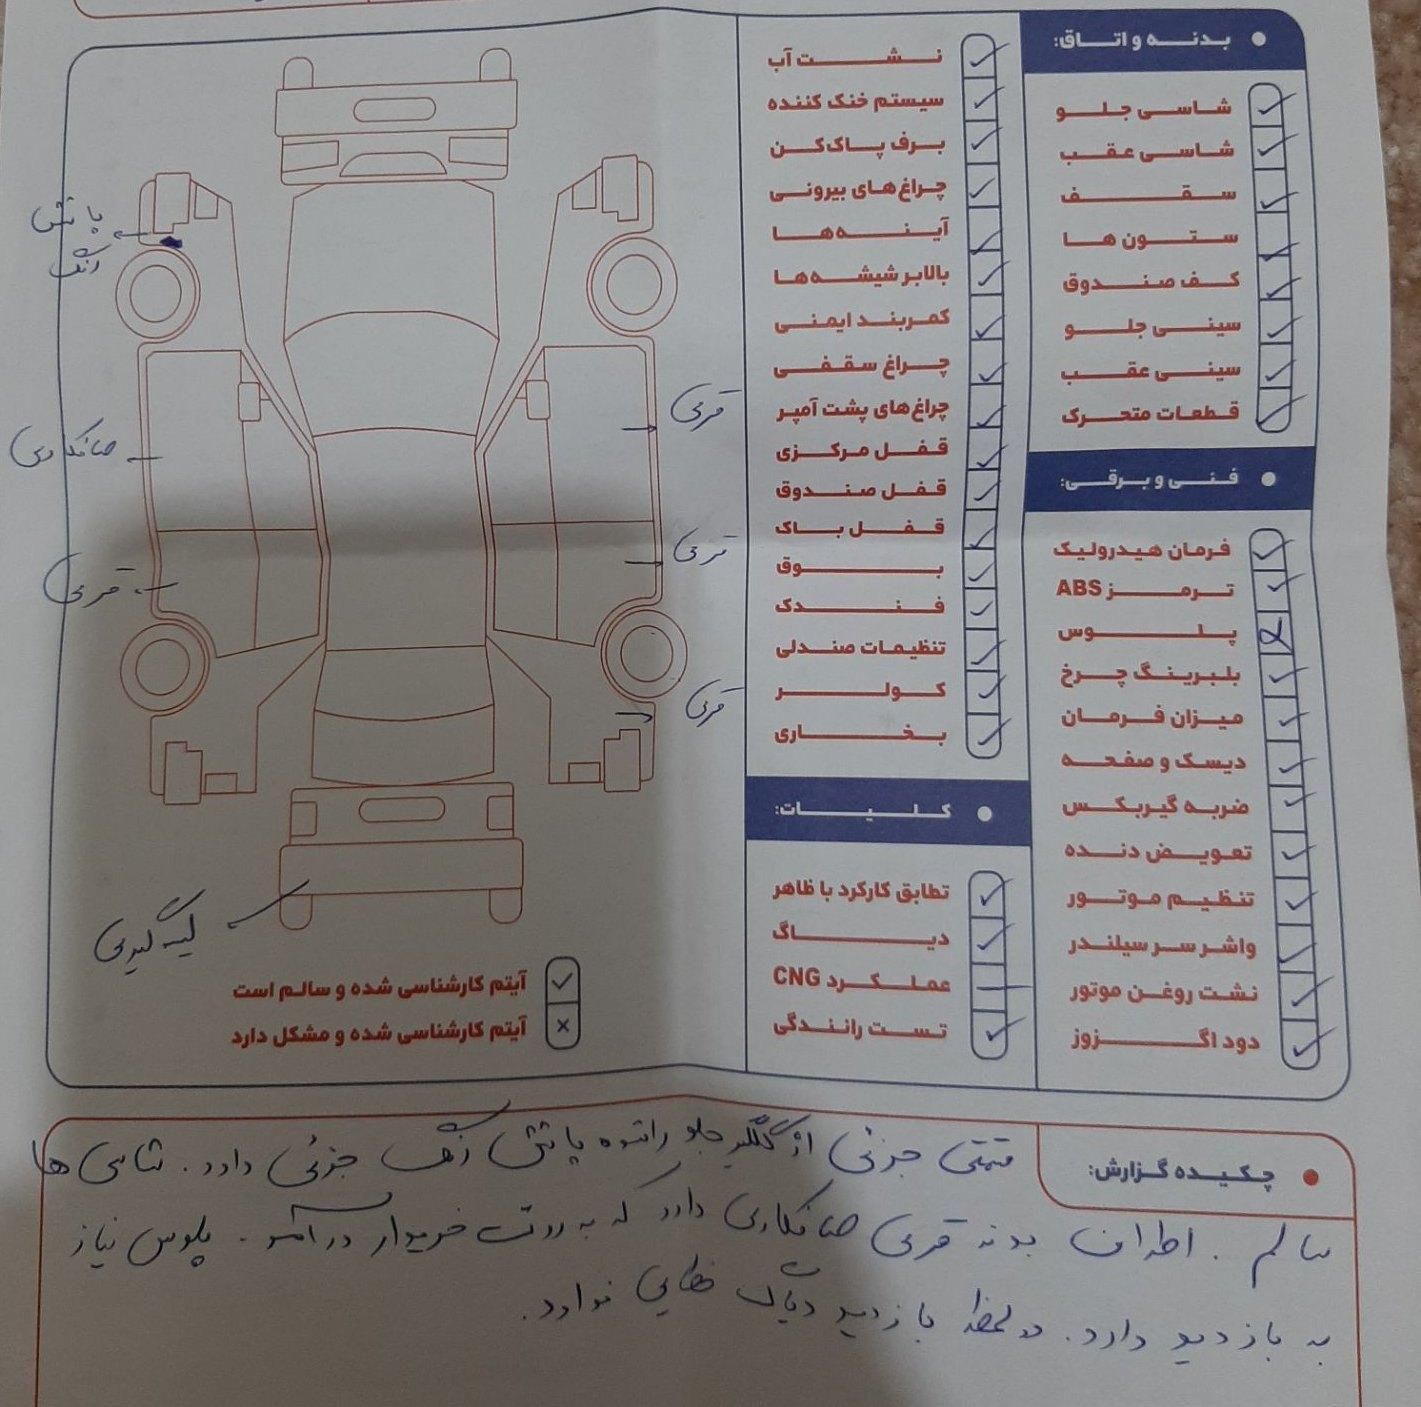 بدنه و اتاق:
شاسی جلو
شاسی عقب
سقف
ستون ها
کف صندوق
سینی جلو
سینی عقب
قطعات متحرک
فنی و برقی:
فرمان هیدرولیک
ترمز ABS
پلوس
بلبرینگ چرخ
میزان فرمان
دیسک و صفحه
ضربه گیربکس
تعویض دنده
تنظیم موتور
واشر سر سیلندر
نشت روغن موتور
دود اگزوز
نشت آب
سیستم خنک کننده
برف پاک‌کن
چراغ‌های بیرونی
آینه‌ها
بالابر شیشه‌ها
کمربند ایمنی
چراغ سقفی
چراغ‌های پشت آمپر
قفل مرکزی
قفل صندوق
قفل باک
بوق
فندک
تنظیمات صندلی
کولر
بخاری
کلیات:
تطابق کارکرد با ظاهر
دیاگ
عملکرد CNG
تست رانندگی
پاشش
رنگ
صافکاری
قری
قری
قری
قری
لیسه گیری
آیتم کارشناسی شده و سالم است
آیتم کارشناسی شده و مشکل دارد
چکیده گزارش:
قسمتی جزئی از گلگیر جلو راننده پاشش رنگ جزئی دارد. شاسی ها
سالم. اطراف بدنه قری صافکاری دارد که به رویت خریدار درآمد. پلوس نیاز
به بازدید دارد. در لحظه بازدید دیاگ خطایی ندارد.